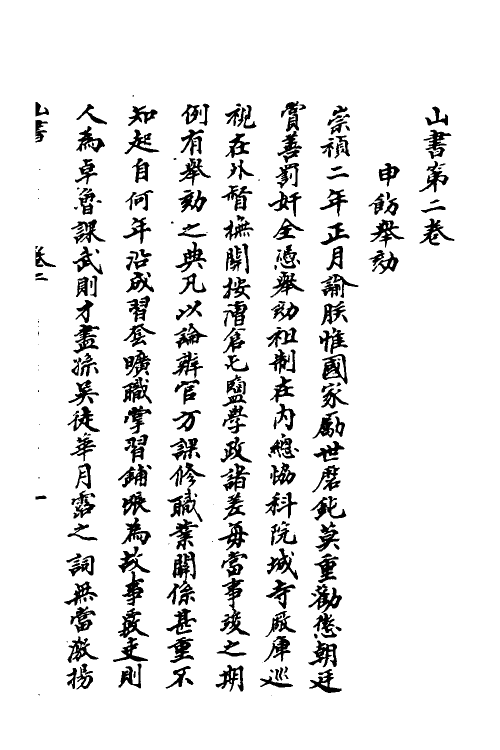 山書第二卷
申飭舉劾
崇禎二年正月諭朕惟國家勵世磨鈍莫重勸懲朝廷
賞善罰奸全憑舉劾祖制在內總協科院城寺廠庫巡
視在外督撫關按漕倉屯鹽學政諸差每當事竣之期
例有舉劾之典凡以論辨官方課修職業關係甚重不
知起自何年沿成習套曠職掌習鋪張為故事覈吏則
人為卓魯課武則才盡孫吳徒華月露之詞無當激揚
山書 卷二 一